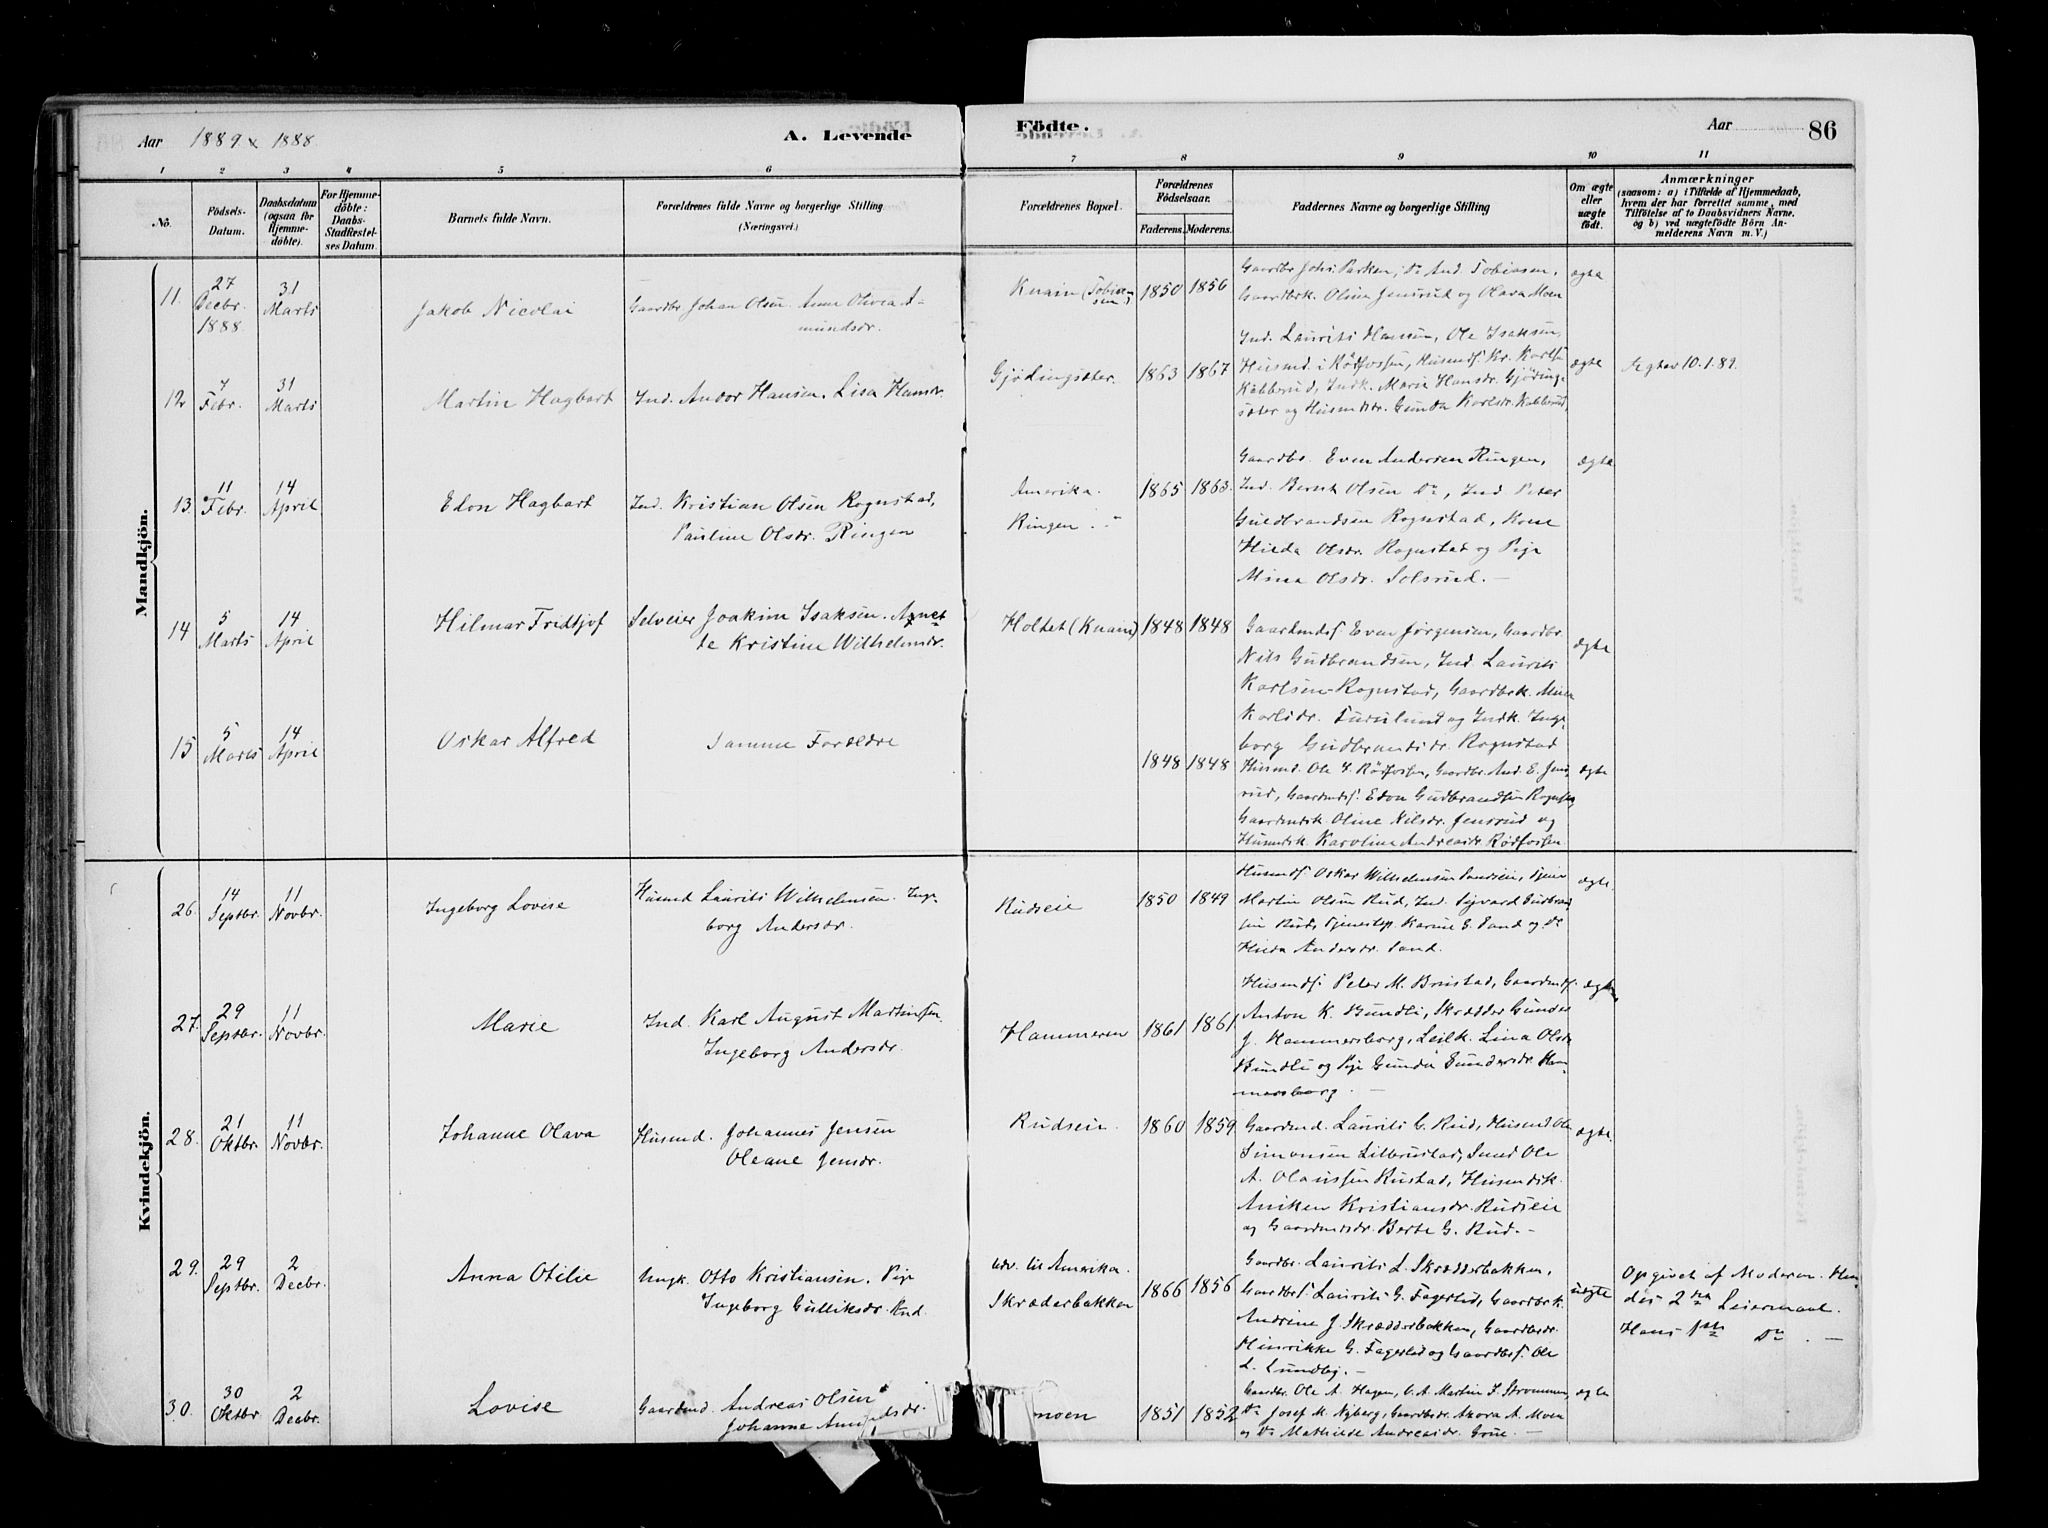 Aar 1889 & 1888 A. Levende Födte. Aar 86
1 2 3 4 5 6 7 8 9 10 11
No. Födsels-Datum. Daabsdatum (ogsaa for Hjemmedöbte). For Hjemmedöbte: Daabs-Stadfæstelses Datum. Barnets fulde Navn. Forældrenes fulde Navne og borgerlige Stilling (Næringsvei.) Forældrenes Bopæl. Forældrenes Födselsaar. Faderens. Moderens. Faddernes Navne og borgerlige Stilling Om ægte eller uægte födt. Anmærkninger (saasom: a) i Tilfælde af Hjemmedaab, hvem der har forrettet samme, med Tilföielse af to Daabsvidners Navne, og b) ved uægtefödte Börn Anmelderens Navn m. V.)
Mandkjön.
11. 27 Decbr. 1888. 31 Marts Jakob Nicolai Gaardbr Johan Olsen. Anne Olivea A-
mundsdr.
Knain (Tobiesen) 1850 1856
Gaardbr Johs. Parken, Do And. Tobiasen, ægte
Gaardbrk. Oline Jensrud og Olava Moen
12 7 Febr. 31 Marts Martin Hagbart Ind. Andor Hansen. Lisa Hansdr.
Gjødingsæter. 1863 1867
Ind. Laurits Hansen, Ole Isaksen,
Husmd. i Rødfossen, Husmds. Kr. Karlsen ægte Ægtev 10.1.89.
Kabberud, Indk. Marie Hansdr. Gjødings-
sæter og Husmdsdr. Gunda Karlsdr. Kabberud.
13. 11 Febr. 14 April Edon Hagbart Ind. Kristian Olsen Rognstad,
Pauline Olsdr. Ringen
Amerika. 1865 1863.
Ringen
Gaardbr. Even Andersen Ringen, ægte
Ind. Bernt Olsen Do, Ind Peter
Guldbrandsen Rognstad, Kone
Hilda Olsdr. Rognstad og Pige
Mina Olsdr. Solsrud. —
14 5 Marts 14 April Hilmar Fridtjof Selveier Joakim Isaksen. Agnet-
te Kristine Wilhelmsdr.
Holtet (Knain) 1848 1848
Gaardmds. Even Jørgensen, Gaardbr.
Nils Gudbrandsen, Ind Laurits ægte
Karlsen Rognstad, Gaardbrk. Mina
Karlsdr. Furulund og Indk. Inge-
borg Gudbrandsdr. Rognstad
15 5 Marts 14 April Oskar Alfred Samme Forældre
1848 1848
Husmd. Ole I. Rødfossen, Gaardbr. And. E. Jens- ægte
rud, Gaardmds. Edon Gudbrandsen Rognstad,
Gaardmdsk. Oline Nilsdr. Jensrud og
Husmdsk. Karoline Andreasdr. Rødfossen
Kvindekjön.
26. 14 Septbr. 11 Novbr. Ingeborg Lovise Husmd Laurits Wilhelmsen. Inge-
borg Andersdr.
Rudseie 1850 1849
Husmds. Oskar Wilhelmsen Sandseie, Tjener ægte
Martin Olsen Rud, Ind. Sigvard Gudbrand-
sen Rud, Tjenestep. Karine G. Sand og Do
Hilda Andersdr. Sand.
27. 29 Septbr. 11 Novbr. Marie Ind. Karl August Martinsen.
Ingeborg Andersdr.
Hammeren 1861 1861
Husmds. Peter M. Brustad, Gaardmds. ægte
Anton K. Bundli, Skrædder Gunder
J. Hammersborg, Leilk. Lina Olsdr
Bundli og Pige Gunda Gundersdr. Ham-
mersborg. —
28. 21 Oktbr. 11 Novbr. Johanne Olava Husmd. Johannes Jensen
Oleane Jensdr.
Rudseie. 1860 1859
Gaardmd. Laurits C. Rud, Husmd Ole ægte.
Simonsen Lillerustad, Smed Ole
A. Olaussen Rustad, Husmdsk.
Aniken Kristiansdr. Rudseie
og Gaardmdsdr. Berte G. Rud. —
29. 29 Septbr. 2 Decbr. Anna Otilie Ungk. Otto Kristiansen. Pige
Ingeborg Gulliksdr. Rud.
Udv. til Amerika.
Skræderbakken 1866 1856
Gaardbr. Laurits L. Skrædderbakken,
Gaardbrs. Laurits G. Fagerlid, Gaardbrk. uægte
Andrine J. Skrædderbakken, Gaardbrdr.
Hinrikke G. Fagerlid og Gaardbrs. Ole
L. Lundby. —
Opgivet af Moderen. Hen-
des 2det Leiermaal.
Hans 1ste Do. —
30. 30 Oktbr 2 Decbr. Lovise Gaardmd. Andreas Olsen
Johanne Amundsdr.
moen 1851 1852
Gaardbr. Ole A. Hagen, Martin J. Strommen, ægte
Do Josef M. Nyberg, Gaardbrdr. Anora A. Moen
og Do Mathilde Andreasdr. Grue. —